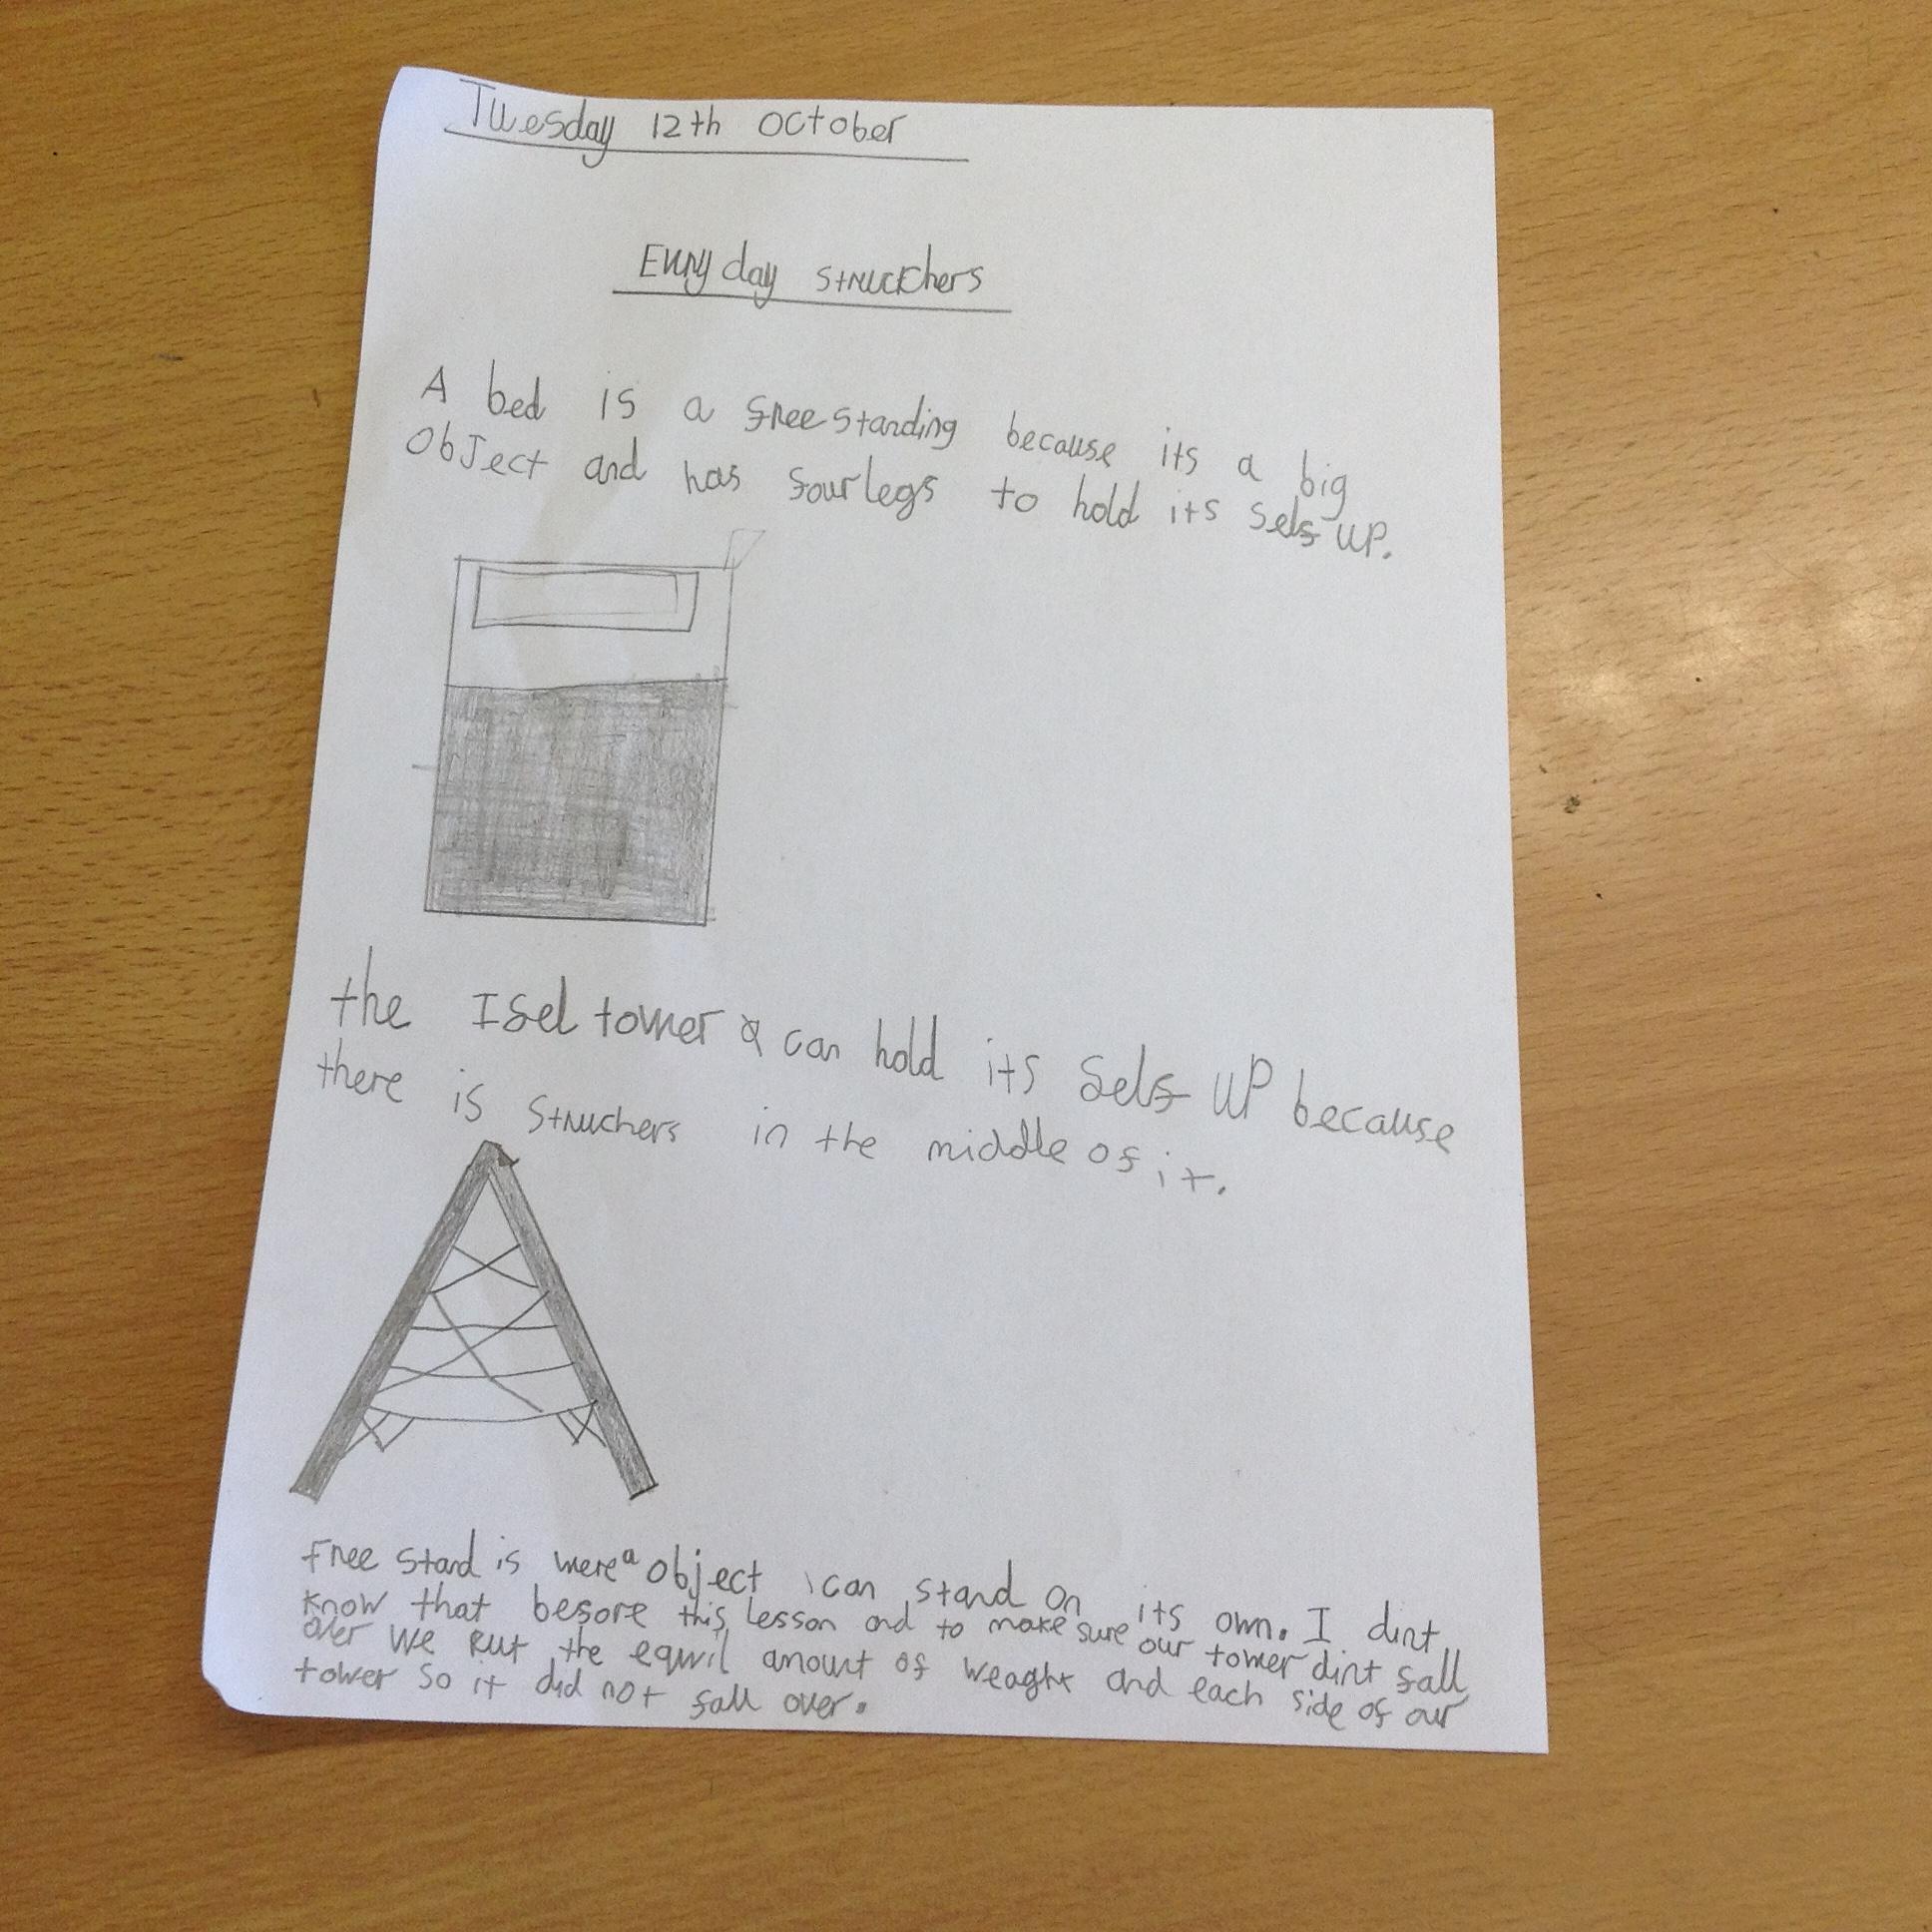 Tuesday 12th October
Evryday struckchers
A bed is a freestanding because its a big
object and has four legs to hold its self up.
the Ifel tower can hold its self up because
there is struchers in the middle of it.
free stand is were a object can stand on its own. I dint
know that before this lesson and to make sure our tower dint fall
over we put the equil amount of weaght and each side of our
tower so it did not fall over.